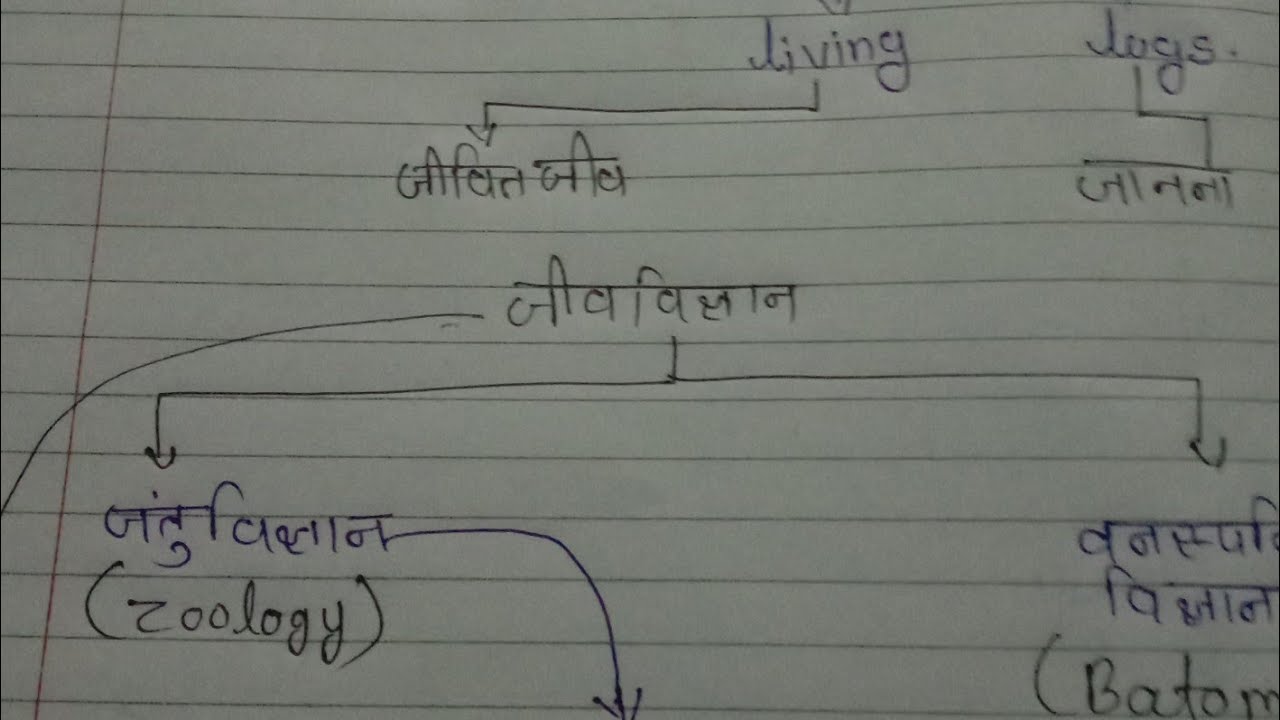 living logs.
जीवित जीव जानना
जीव विज्ञान
जंतु विज्ञान वनस्पति
(zoology) विज्ञान
(Batom